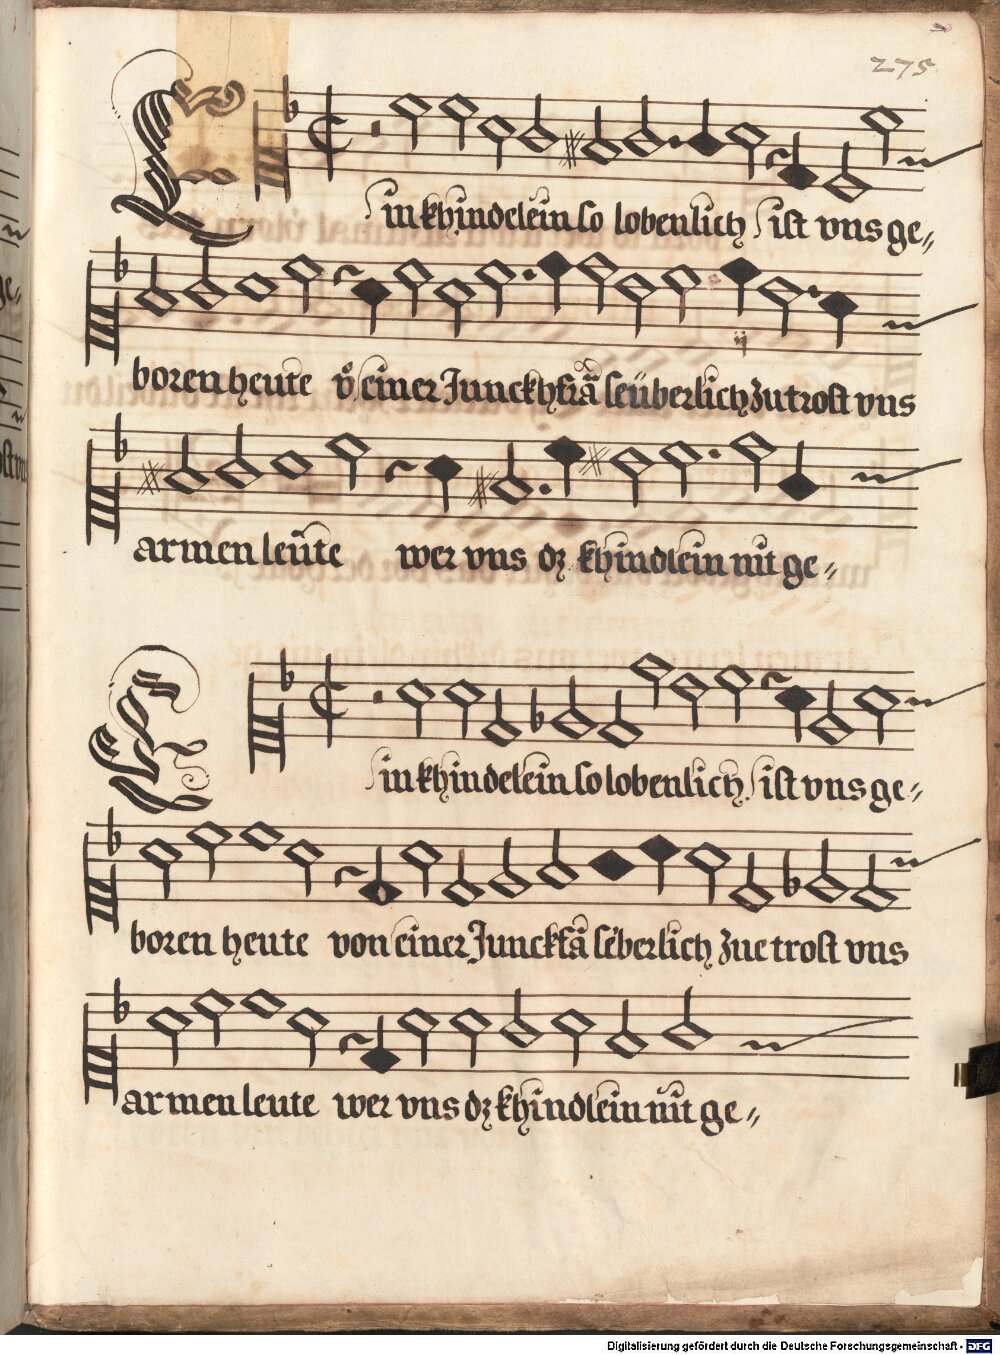 275
Ein khindelein so lobenlich ist vns ge⸗
boren heute vō einer Junckhfrā seüberlich zu trost vns
ij
armen leüte wer vns dz khindlein nit ge⸗
Ein khindelein so lobenlich ist vns ge⸗
boren heute von einer Junckfrā seberlich zue trost vns
armen leute wer vns dz khindlein nit ge⸗
Digitalisierung gefördert durch die Deutsche Forschungsgemeinschaft - DFG